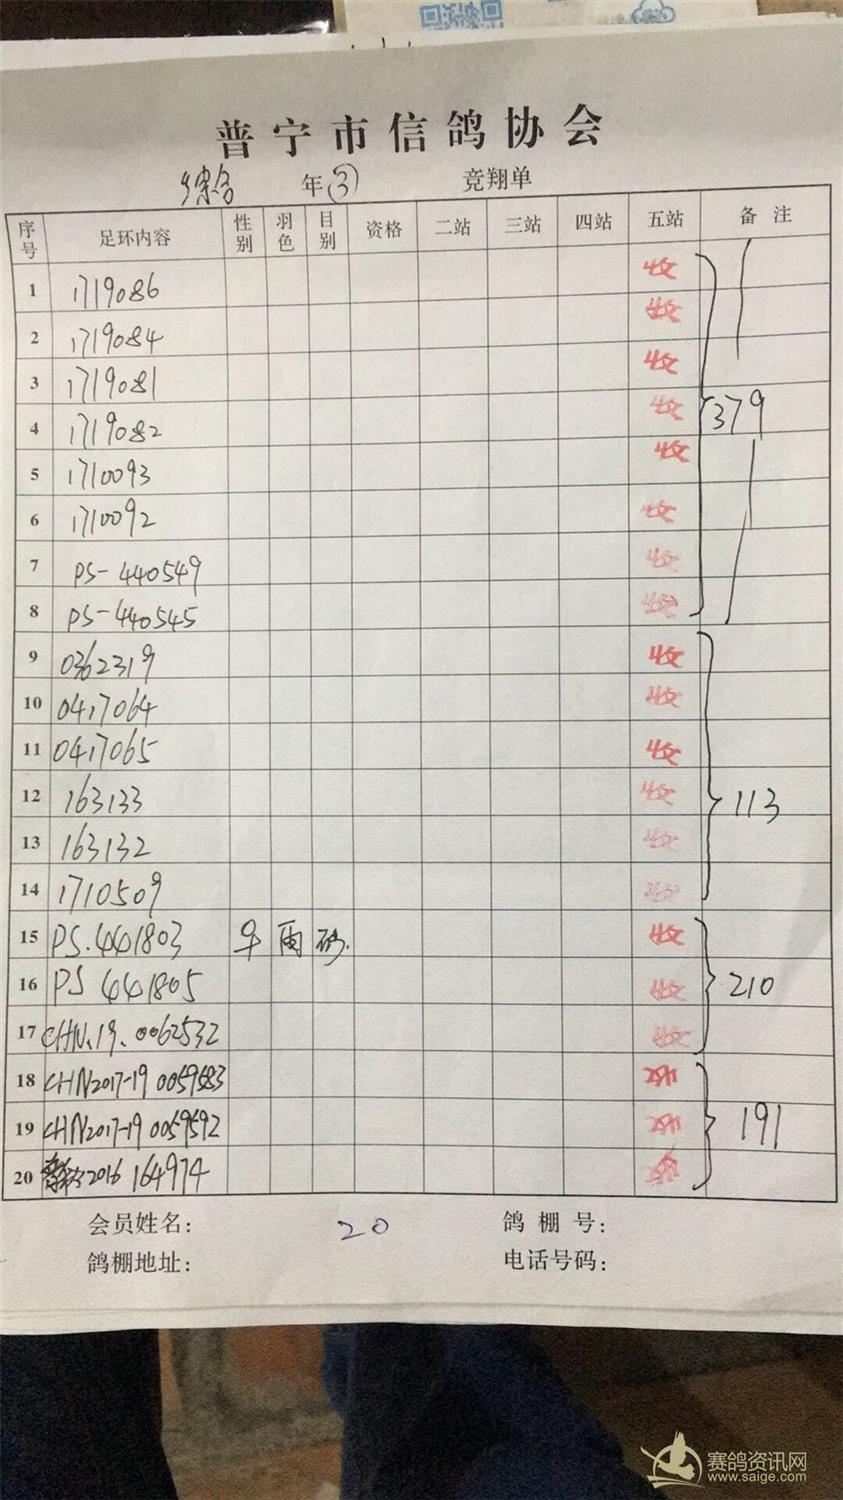 普宁市信鸽协会
综合 年③ 竞翔单
序号 足环内容 性别 羽色 目别 资格 二站 三站 四站 五站 备注
1 1719086 收
2 1719084 收
3 1719081 收
4 1719082 收 379
5 1710093 收
6 1710092 收
7 PS-440549 收
8 PS-440545 收
9 0362319 收
10 0417064 收
11 0417065 收
12 163133 收 113
13 163132 收
14 1710509 收
15 PS.441803 雨 砂. 收
16 PS 441805 收 210
17 CHN.19.0062532 收
18 CHN2017-19 0059583
19 CHN2017-19 0059592 191
20 2016 164974
会员姓名: 20 鸽棚号:
鸽棚地址: 电话号码:
赛鸽资讯网
www.saige.com